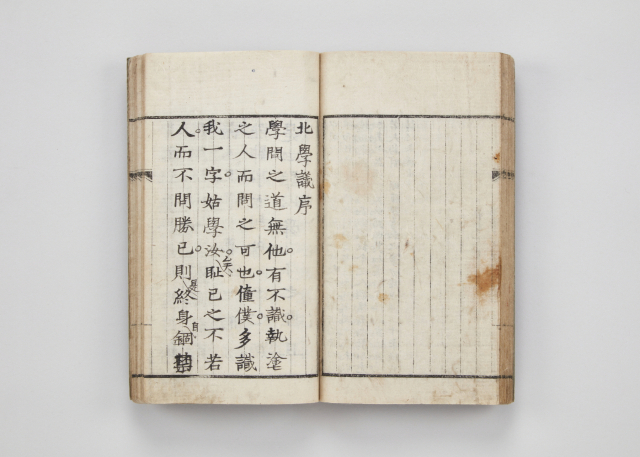 北學議序
學問之道無他有不識執塗
之人而問之可也僮僕多識
我一字姑學汝矣恥己之不若
人而不問勝己則是終身自錮